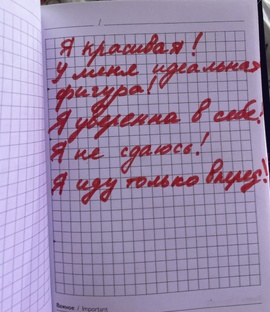 Я красивая!
У меня идеальная
фигура!
Я уверенна в себе!
Я не сдаюсь!
Я иду только вперед!
Важное / Important